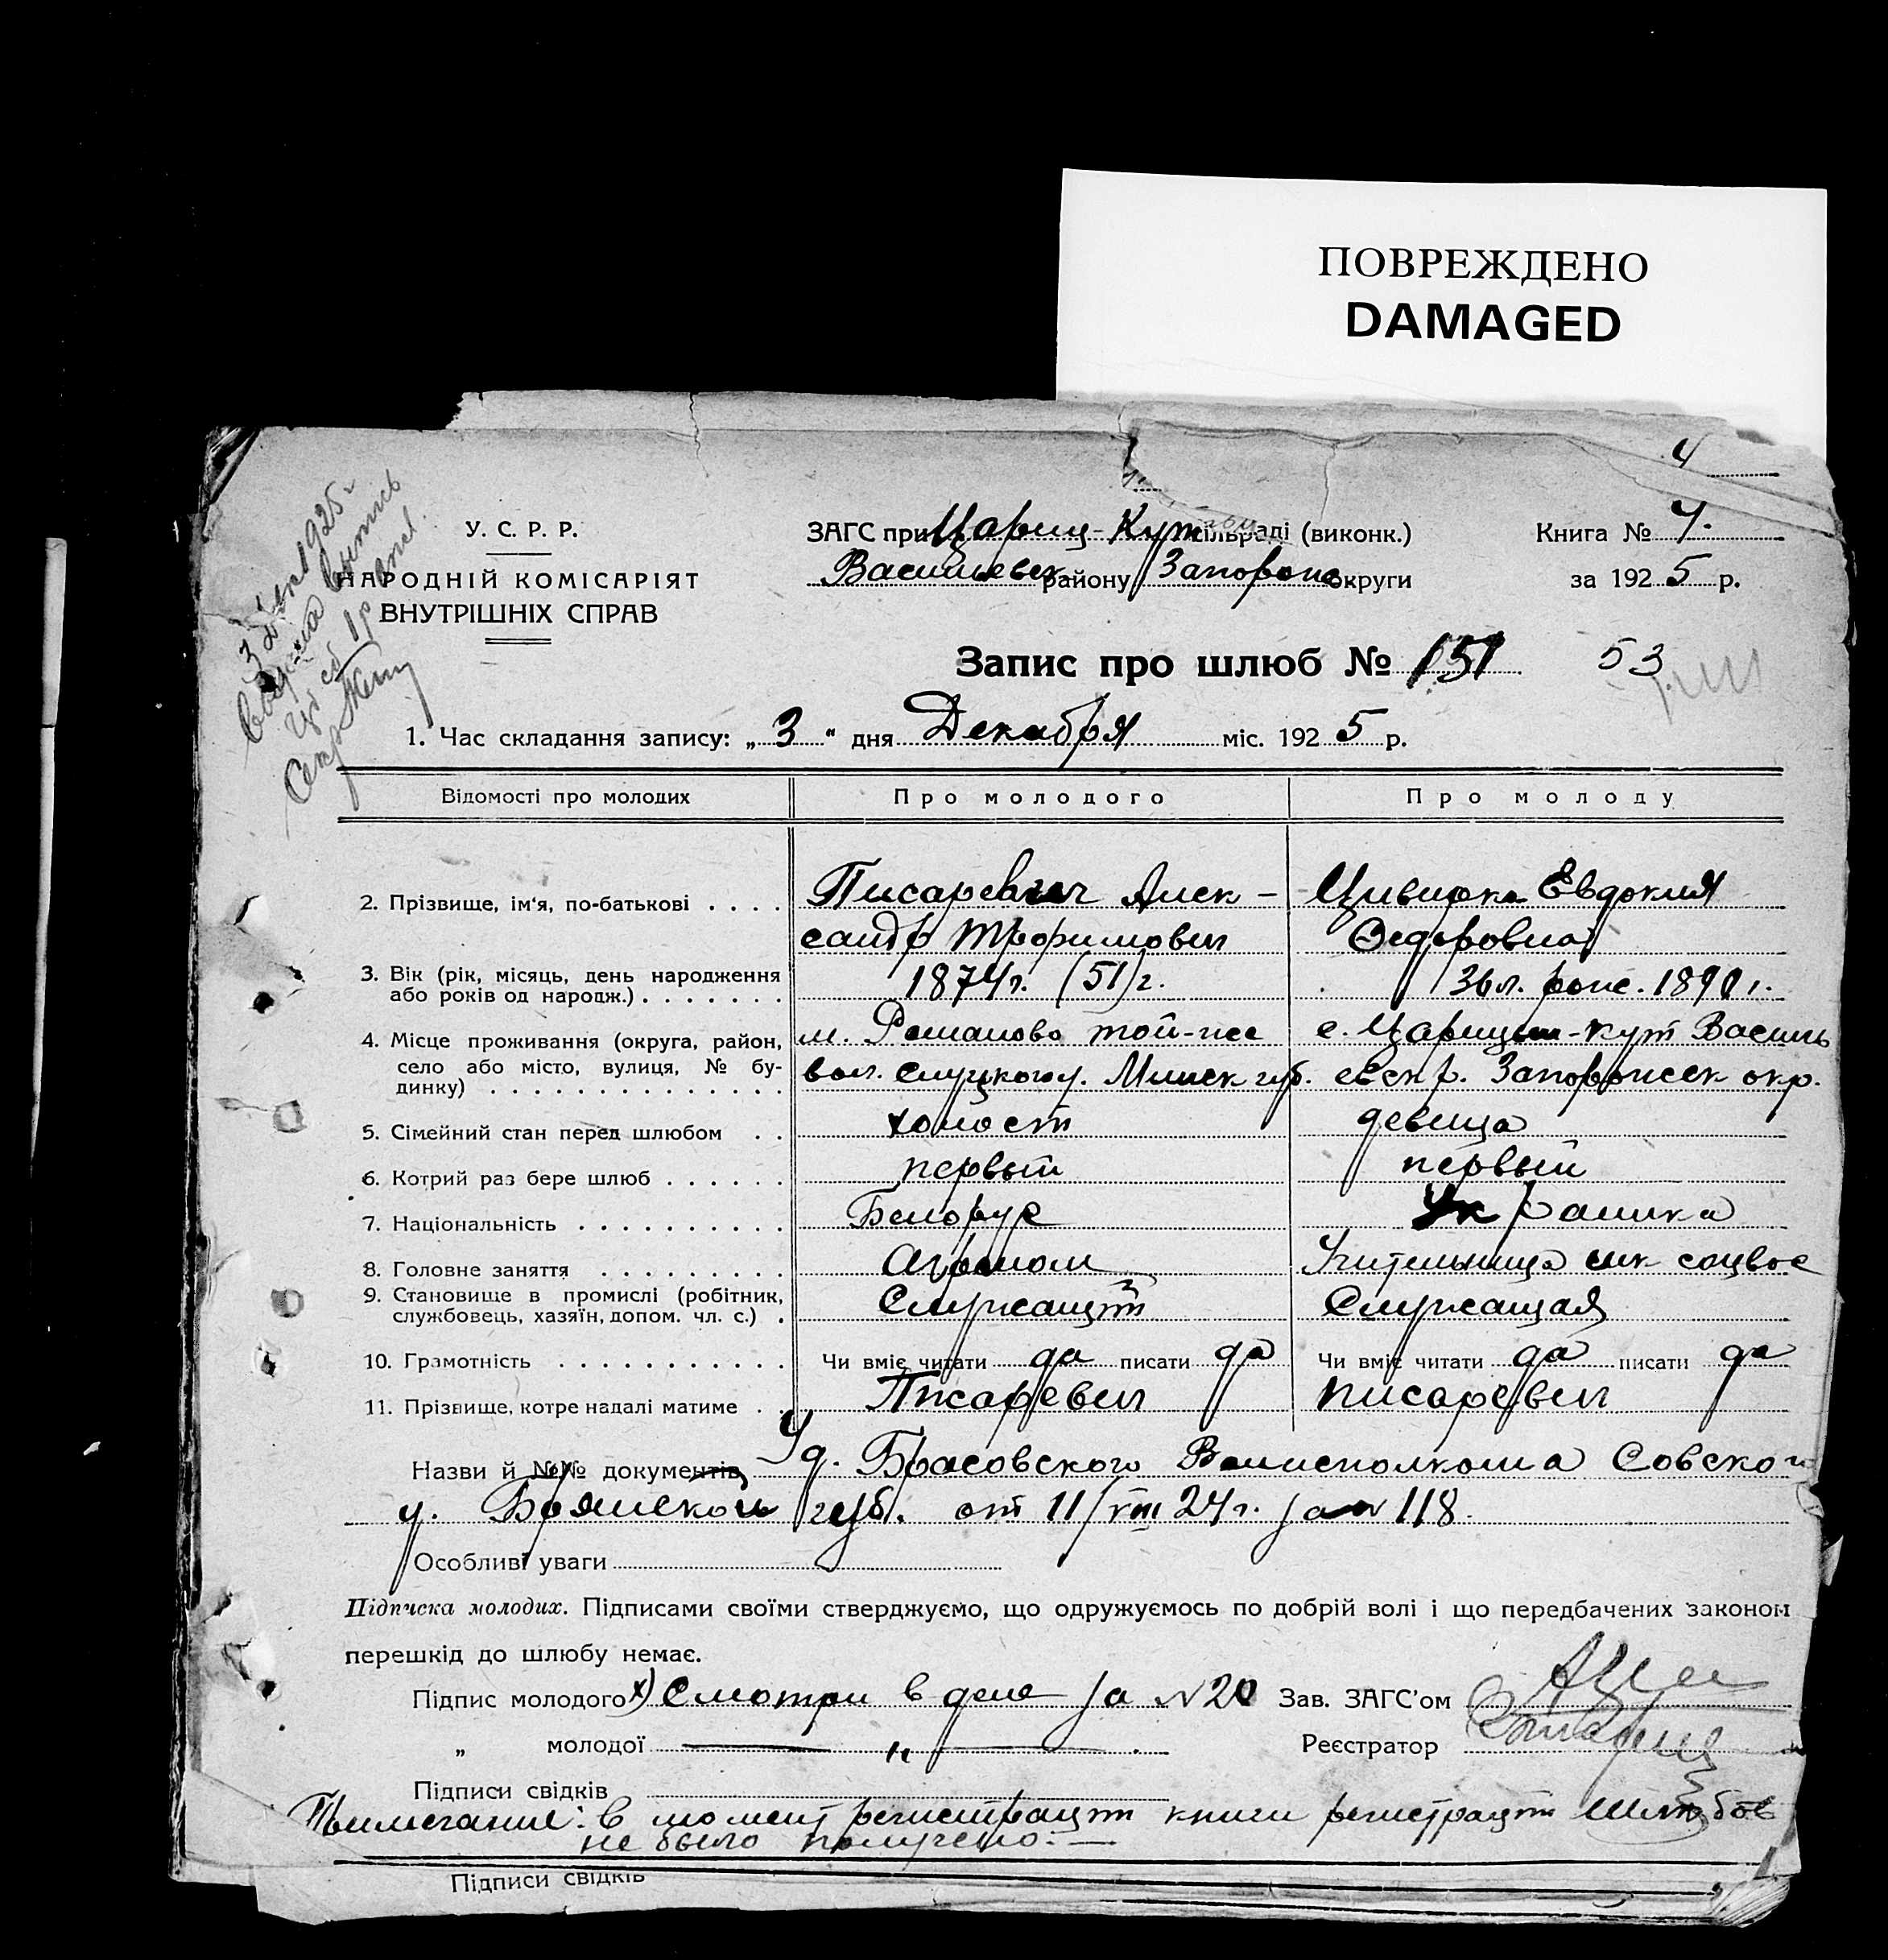 ПОВРЕЖДЕНО
DAMAGED
4
3 Дек 1925 г
У. С. Р. Р.
НАРОДНІЙ КОМІСАРІЯТ
ВНУТРІШНІХ СПРАВ
ЗАГС при Цариц-Кут сільраді (виконк.)
Васильевск району Запорож. округи
Книга № 4.
за 1925 р.
Запис про шлюб № 151 53
1. Час складання запису: „3“ дня Декабря міс. 1925 р.
Відомості про молодих Про молодого Про молоду
2. Прізвище, ім'я, по-батькові . . . . Писаревич Алек- Цивирка Евдокия
сандр Трофимович Федоровна
3. Вік (рік, місяць, день народження
або років од народж.) . . . . . . . 1874 г. (51) г. 36 л. рож. г.
4. Місце проживання (округа, район,
село або місто, вулиця, № бу-
динку) . . . . . . . . . . . . . .
м. Романово той-же с. Царицын-Кут Василь
вол. Слуцкого у. Минск губ. евск р. Запорожск окр.
5. Сімейний стан перед шлюбом . . холост девица
6. Котрий раз бере шлюб . . . . . . первый первый
7. Національність . . . . . . . . . . Белорус Украинка
8. Головне заняття . . . . . . . . . Агроном Учительница шк соцвос
9. Становище в промислі (робітник,
службовець, хазяїн, допом. чл. с.) . Служащий Служащая
10. Грамотність . . . . . . . . . . . . Чи вміє читати да писати да Чи вміє читати да писати да
11. Прізвище, котре надалі матиме . . Писаревич Писаревич
Назви й №№ документів Уд. Брасовского Волисполкома Севского
у. Брянской губ. от 11/VIII 24 г. за № 118.
Особливі уваги
Підписка молодих. Підписами своїми стверджуємо, що одружуємось по добрій волі і що передбачених законом
перешкід до шлюбу немає.
Підпис молодого х) Смотри в деле за № 20 Зав. ЗАГС'ом
„ молодої — „ — . Реєстратор
Підписи свідків
Примечание: в момент регистрации книги регистрации шлюбов
не было получено. —
Підписи свідків